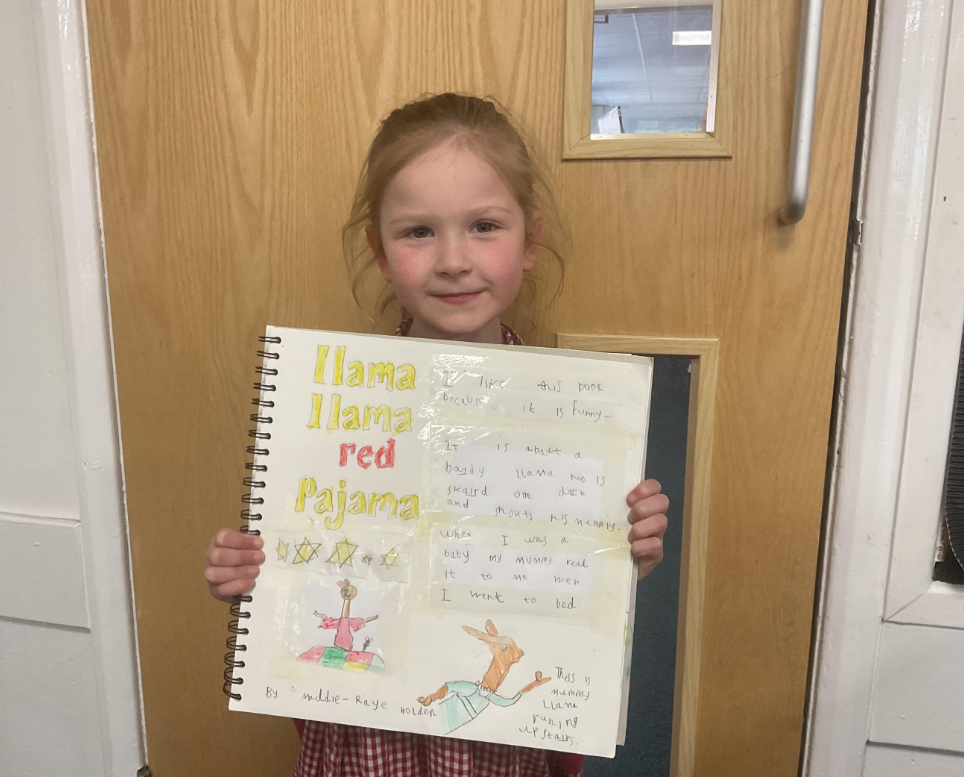 llama
llama
red
Pajama
I like this book
because it is funny.
It is about a
baydy llama hoo is
skaird ove dack
and shouts his mummy.
When I was a
baby my mummy read
it to me wen
I went to bed.
By maddie-Raye HOLDEN
This is
mummy
llama
runing
upstairs.